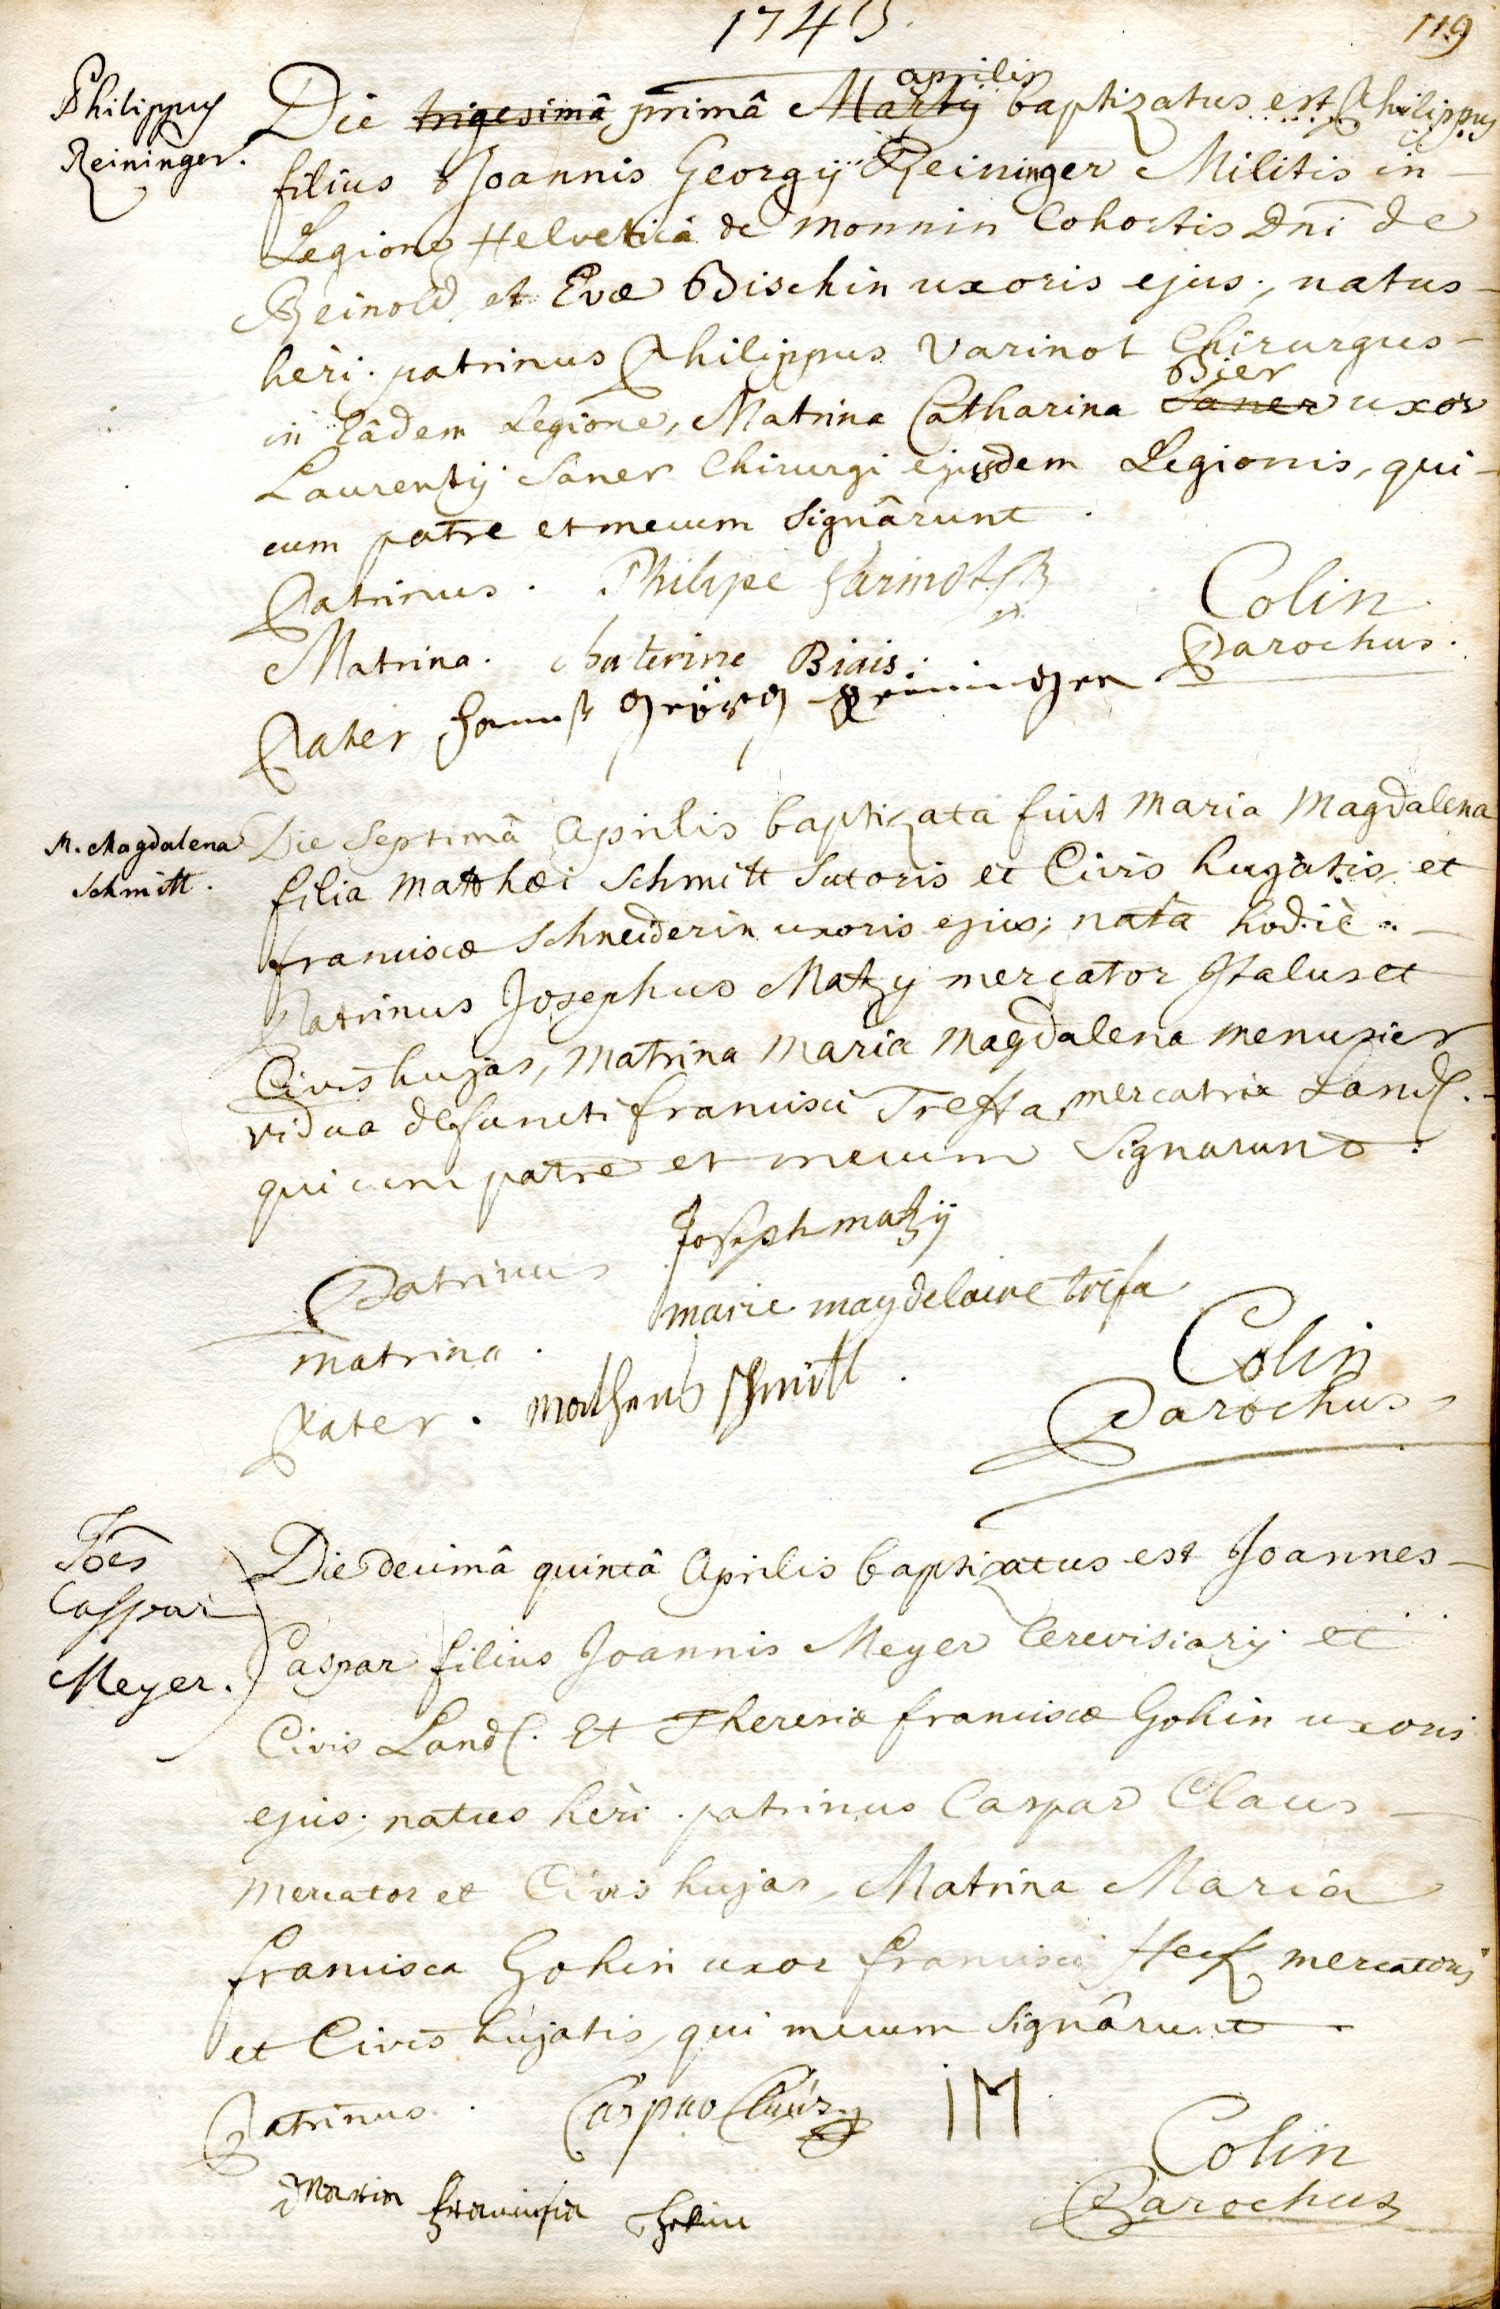 1743.
119
Philippus
Reininger.
Die trigesimâ primâ Martij aprilis baptizatus est Philippus
filius Joannis Georgij Reininger Militis in
Legione Helvetica de Monnin Cohortis Dni de
Reinold, et Evæ Bischin uxoris ejus, natus
heri. patrinus Philippus Varinot Chirurgus
in eâdem Legione, Matrina Catharina Saner Bier uxor
Laurentij Saner Chirurgi ejusdem Legionis, qui
cum patre et mecum signârunt.
Patrinus. Philipe Varinot
Matrina. Chaterine Biais.
Pater Hannß Geörg Reininger
Colin
Parochus.
M. Magdalena
Schmitt.
Die Septimâ Aprilis baptizata fuit Maria Magdalena
filia Matthæi Schmitt Sutoris et Civis hujatis, et
franciscæ Schneiderin uxoris ejus; nata hodiè.
Patrinus Josephus Matzy mercator Italus et
Civis hujas, Matrina Maria Magdalena Menusier
vidua defuncti francisci Treffa, mercatrix Land.
qui cum patre et mecum signarunt.
Patrinus Joseph matzij
matrina. marie magdelaine trefa
Pater. Matheus Schmitt.
Colin
Parochus
Joes
Caspar
Meyer.
Die decimâ quintâ Aprilis baptizatus est Joannes
Caspar filius Joannis Meyer Cerevisiarij et
Civis Land. Et Theresiæ franciscæ Gohin uxoris
ejus; natus hèri. patrinus Caspar Claus
mercator et Civis hujas, Matrina Maria
francisca Gohin uxor francisci Heck mercatoris
et Civis hujatis, qui mecum signârunt.
Patrinus. Caspar IM
Maria francisca Gohin
Colin
Parochus